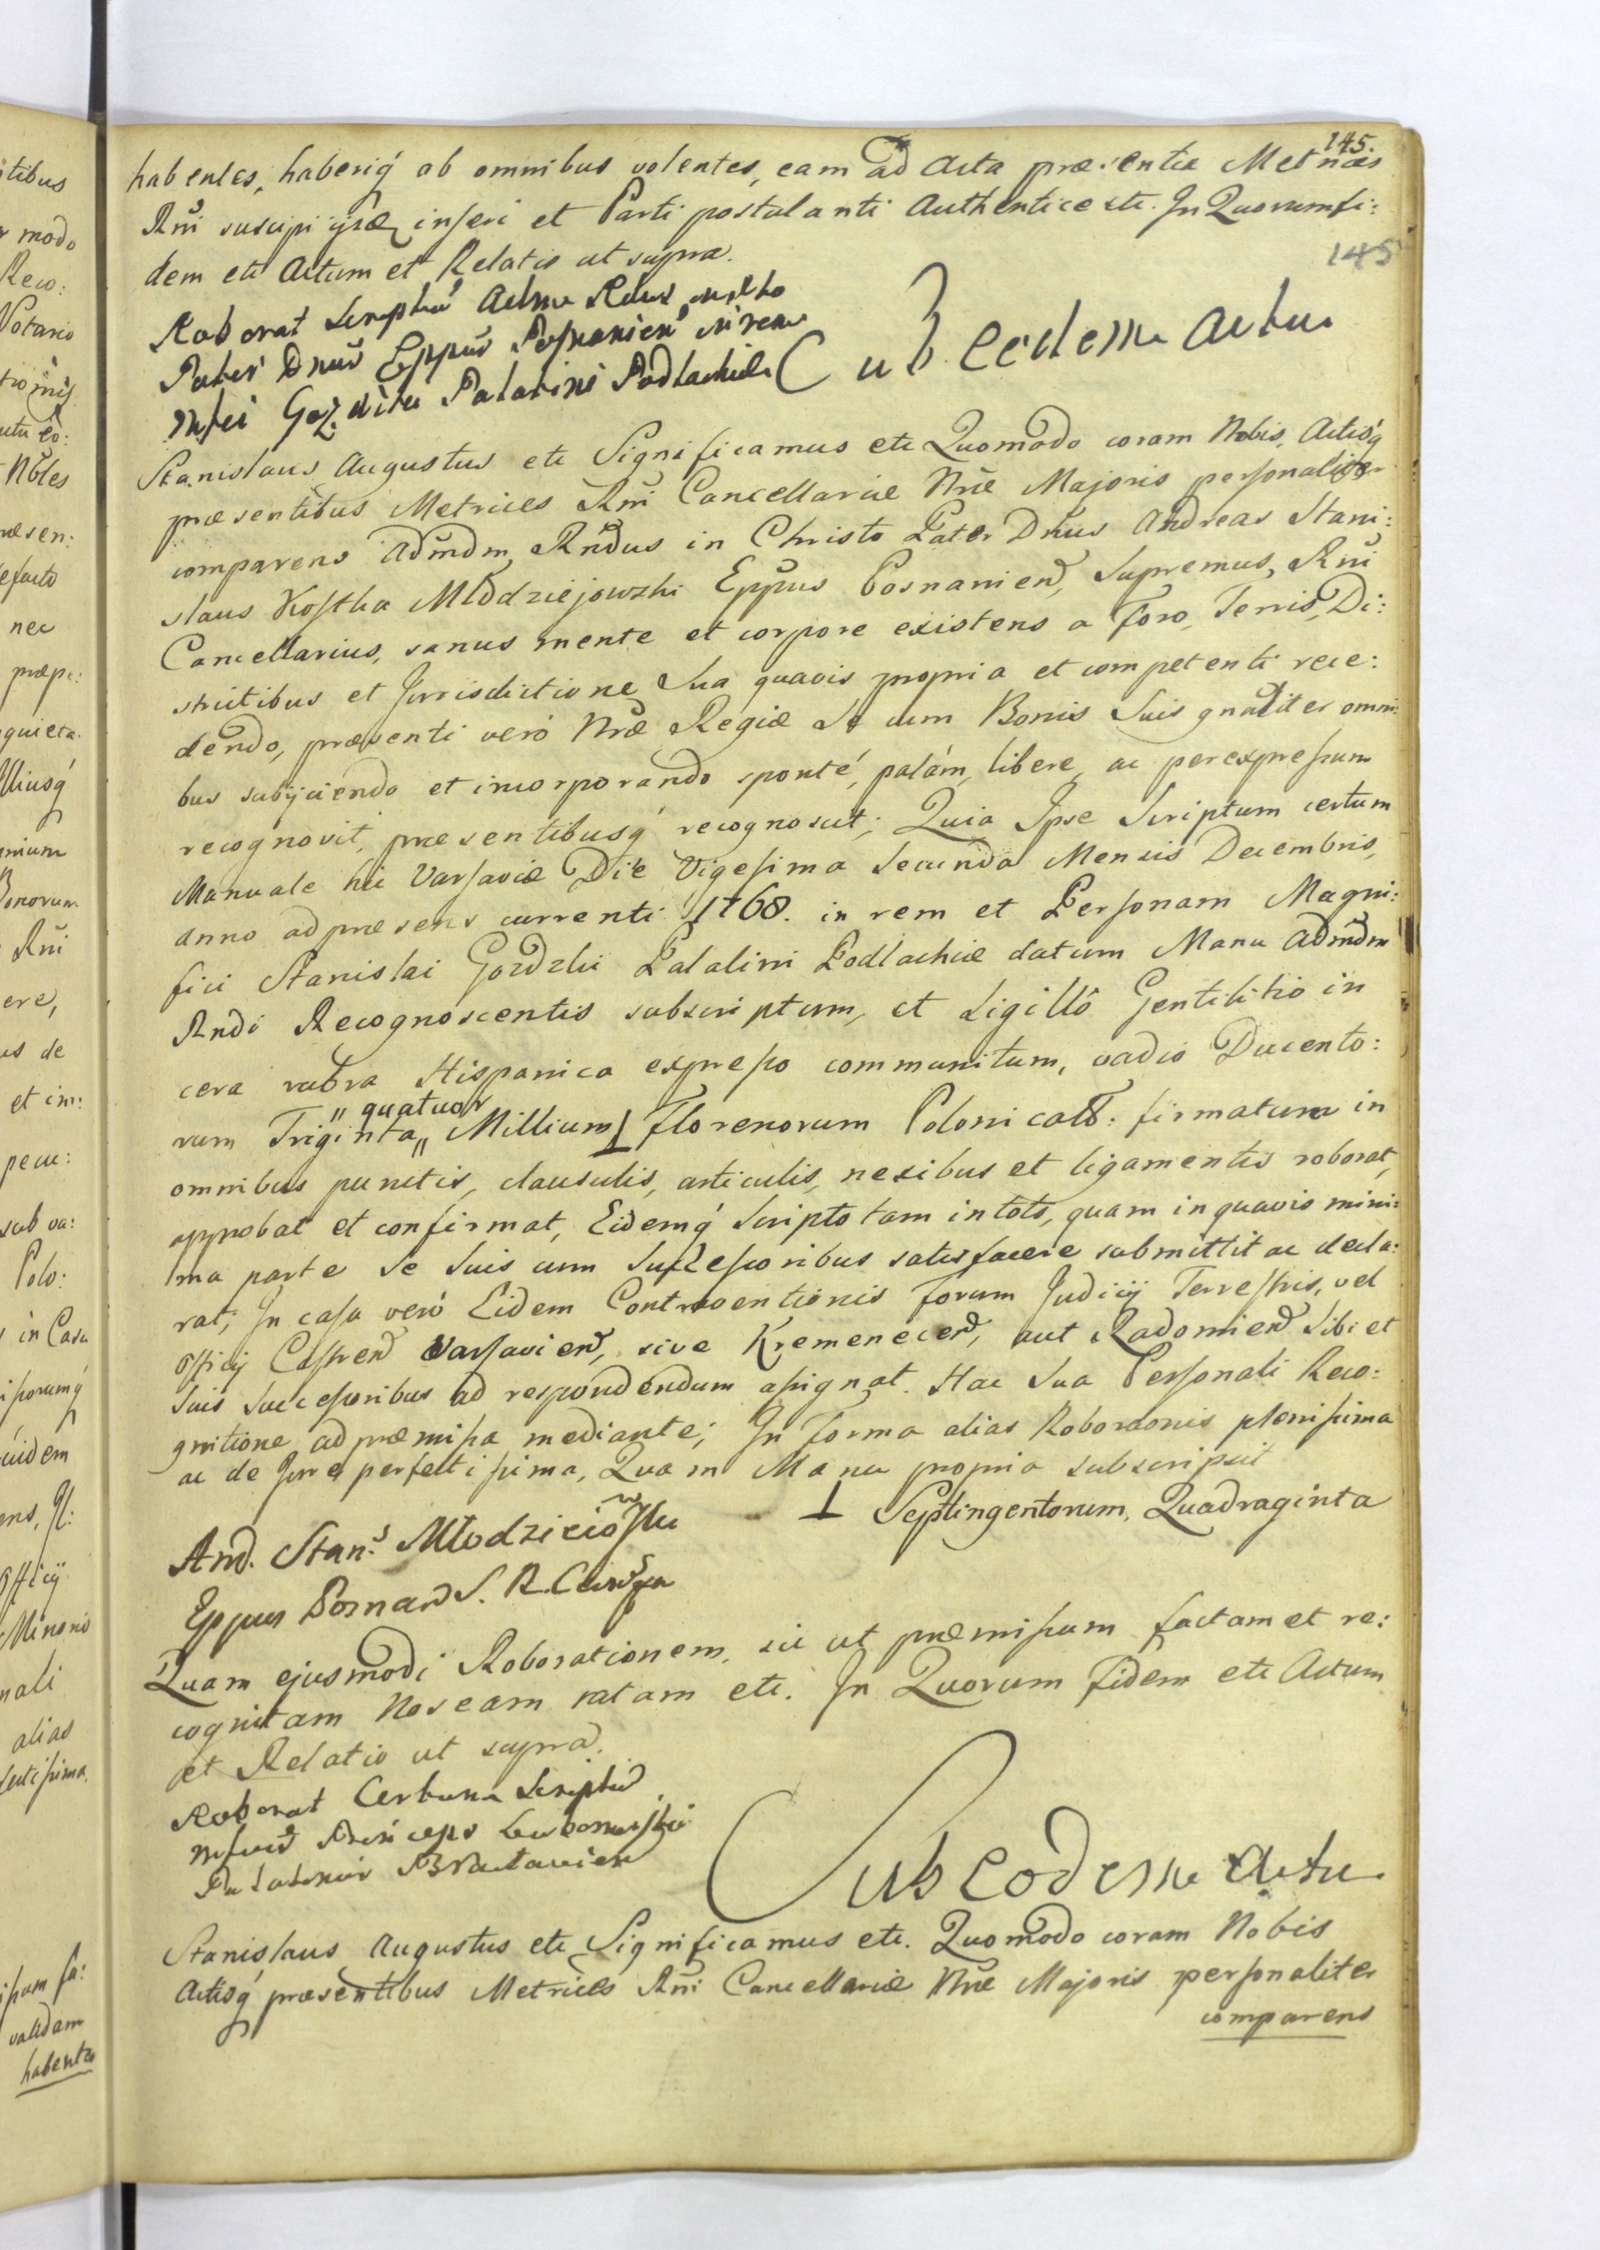 145.
habentes, haberiq́ ab omnibus volentes, eam ad Acta præsentia Metrices
Rni suscipi ijsq inseri et Parti postulanti Authentice etc. In Quorum fi:
dem etc Actum et Relatio ut supra.
145
Roborat Scriptū Adm Rdus
Pater Dnūs Eppūs Posnanien in rem
Mfci Gozdzki Palatini Podlachiæ
Sub eodem Actu
Stanislaus Augustus etc Significamus etc Quomodo coram Nobis, Actisq́
præsentibus Metrices Rni Cancellariæ Nræ Majoris personaliter
comparens Admdm Rndus in Christo Pater Dnus Andreas Stani:
slaus Kostka Młodziejowzki Eppus Posnanien, Supremus Rni
Cancellarius, sanus mente et corpore existens a Foro, Terris, Di:
strictibus et Jurisdictione Sua quavis propria et competenti rece:
dendo, præsenti veró Nræ Regiæ Se cum Bonis Suis gnaliter omni:
bus subijciendo et incorporando sponté, palám, libere, ac per expressum
recognovit, præsentibusq́ recognoscit; Quia Ipse Scriptum certum
Manuale hic Varsaviæ Die Vigesima Secunda Mensis Decembris,
anno ad præsens currenti 1768. in rem et Personam Magni:
fici Stanislai Gozdzki Palatini Podlachiæ datum Manu Admdm
Rndi Recognoscentis subscriptum, et Sigillô Gentilitio in
cera rubra Hispanica expresso communitum, vadio Ducento:
rum Triginta " quatuor " Millium ⊥ Florenorum Polonicalō: firmatum in
omnibus punctis, clausulis, articulis, nexibus et ligamentis roborat,
approbat et confirmat, Eidemq́ Scripto tam in toto, quam in quavis mini:
ma parte Se Suis cum Successoribus satisfacere submittit ac decla:
rat; In casu veró Eidem Contraventionis Forum Judicij Terrestris, vel
Officij Castren Varsavien, sive Kremenecen, aut Radomien Sibi et
Suis Successoribus ad respondendum assignat. Hac Sua Personali Reco:
gnitione ad præmissa mediante; In Forma alias Roboraonis plenissima
ac de Jure perfectissima, Quam Manu propria subscripsit
⊥ Septingentorum, Quadraginta
And. Stan.s Młodzieiowski
Eppus Posnan S. R. Canc.
Quam ejusmodi Roborationem, sic ut præmissum factam et re:
cognitam Nos eam ratam etc. In Quorum fidem etc Actum
et Relatio ut supra.
Roborat Certum Scriptū
Princeps Lubomirski
Palatinus Braclavien
Sub eodem Actu
Stanislaus Augustus etc Significamus etc. Quomodo coram Nobis
Actisq́ præsentibus Metrices Rni Cancellariæ Nræ Majoris personaliter
comparens